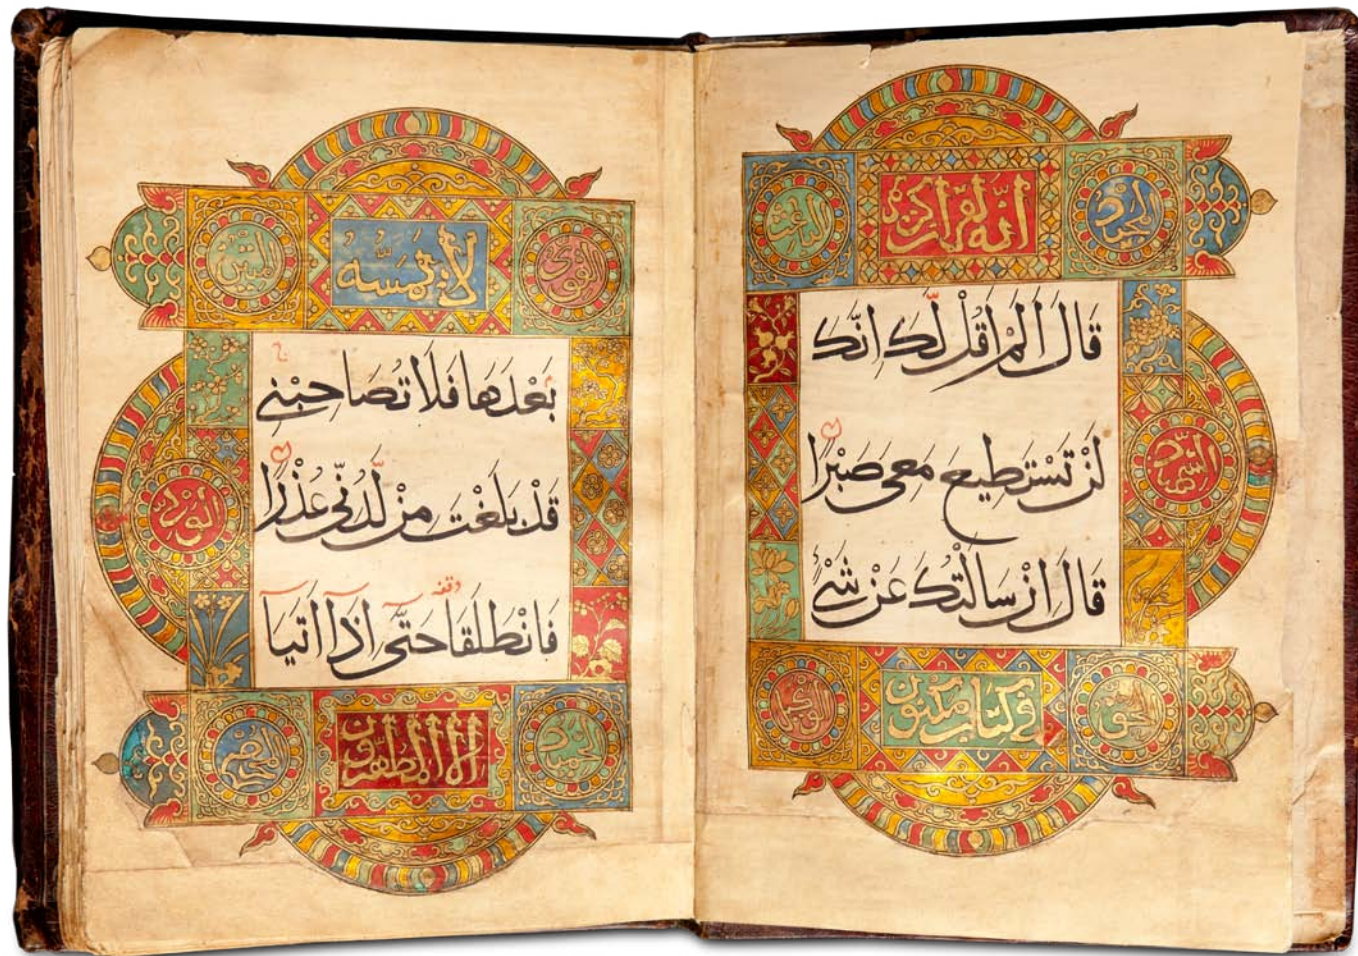 المجيد انه لقرآن كريم الباعث
قَالَ اَلَمْ اَقُلْ لَّكَ اِنَّكَ
لَنْ تَسْتَطِيعَ مَعِىَ صَبْرًا
الشهيد
قَالَ اِنْ سَاَلْتُكَ عَنْ شَىْءٍ
الحق فى كتاب مكنون الوكيل
القوى لَا يَمَسُّهُ المتين
بَعْدَهَا فَلَا تُصَاحِبْنِى
قَدْ بَلَغْتَ مِنْ لَّدُنِّى عُذْرًا
الولى
وقفه
فَانْطَلَقَا حَتَّى اِذَا اَتَيَا
الحميد الا المطهرون المحصى